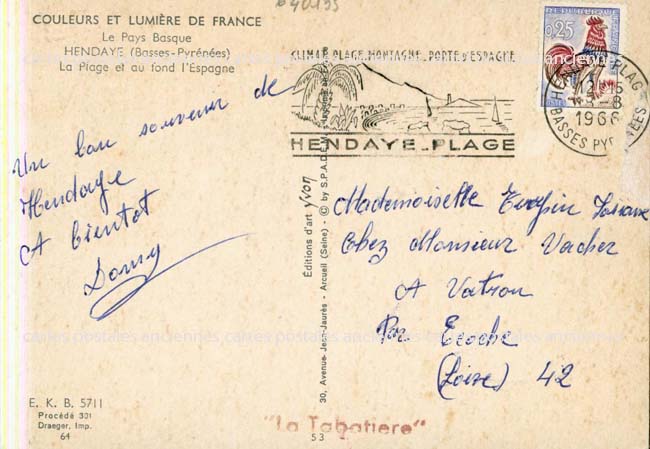 640133
COULEURS ET LUMIÈRE DE FRANCE
Le Pays Basque
HENDAYE (Basses-Pyrénées)
La Plage et au fond l'Espagne
Un bon souvenir de
Hendaye
A bientot
Dany
E. K. B. 5711
Procédé 301
Draeger, Imp.
64
Éditions d'art yvon - © by S.P.A.D.E.M.
30, Avenue Jean-Jaurès - Arcueil (Seine)
53
CLIMAT PLAGE MONTAGNE PORTE D'ESPAGNE
HENDAYE_PLAGE
REPUBLIQUE
0,25
HENDAYE PLAGE
12 H 15
-8
1966
BASSES PYRÉNÉES
Mademoiselle
Chez Monsieur Vacher
A
Par Ecoche
(Loire) 42
"La Tabatiere"
cartes postales anciennes